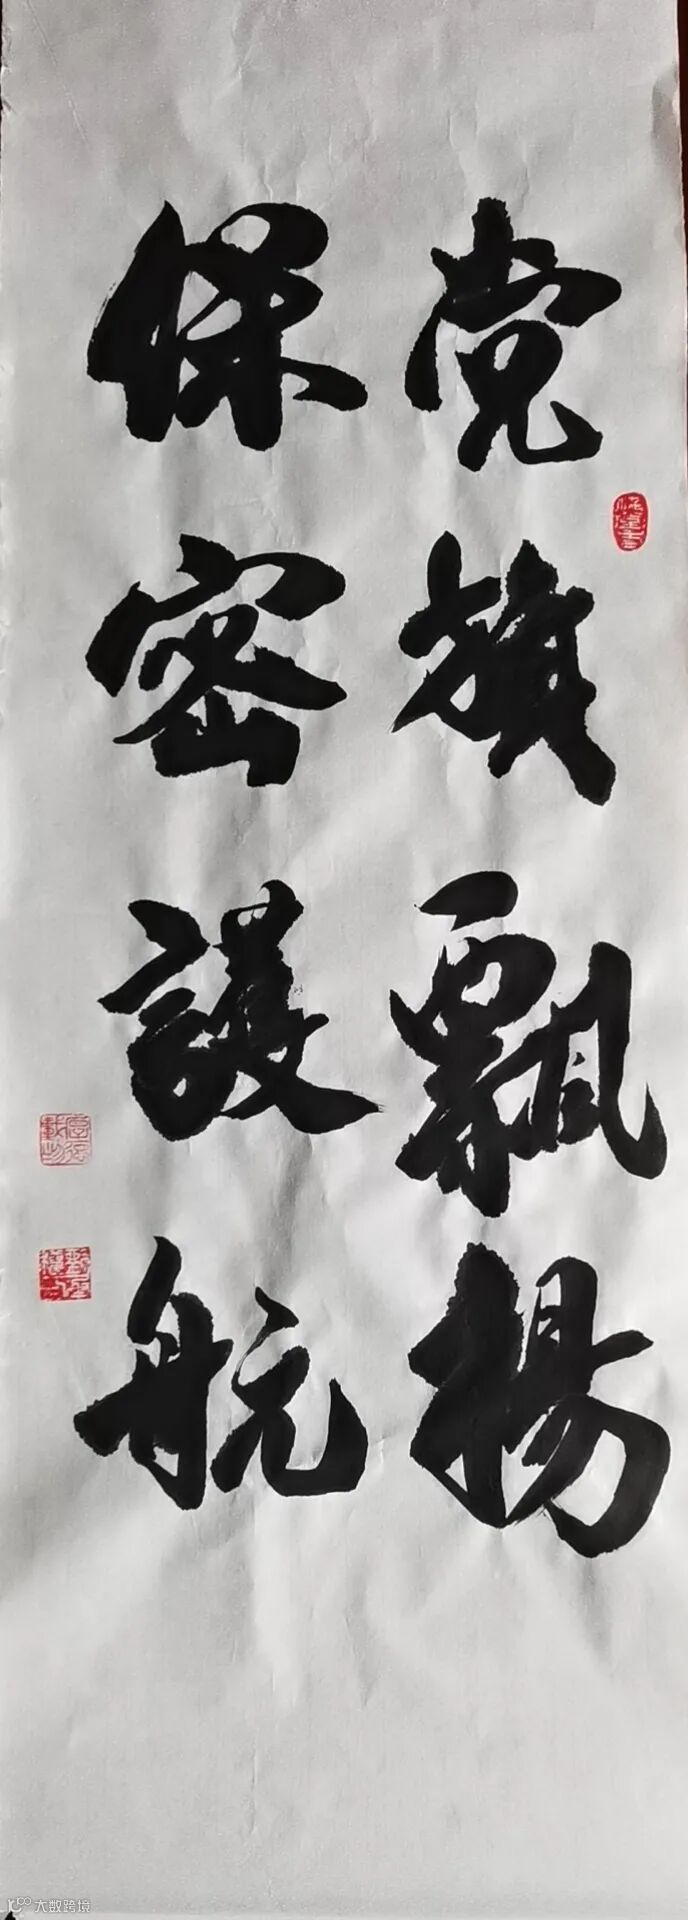 党旗飘揚
保密護航
大数跨境